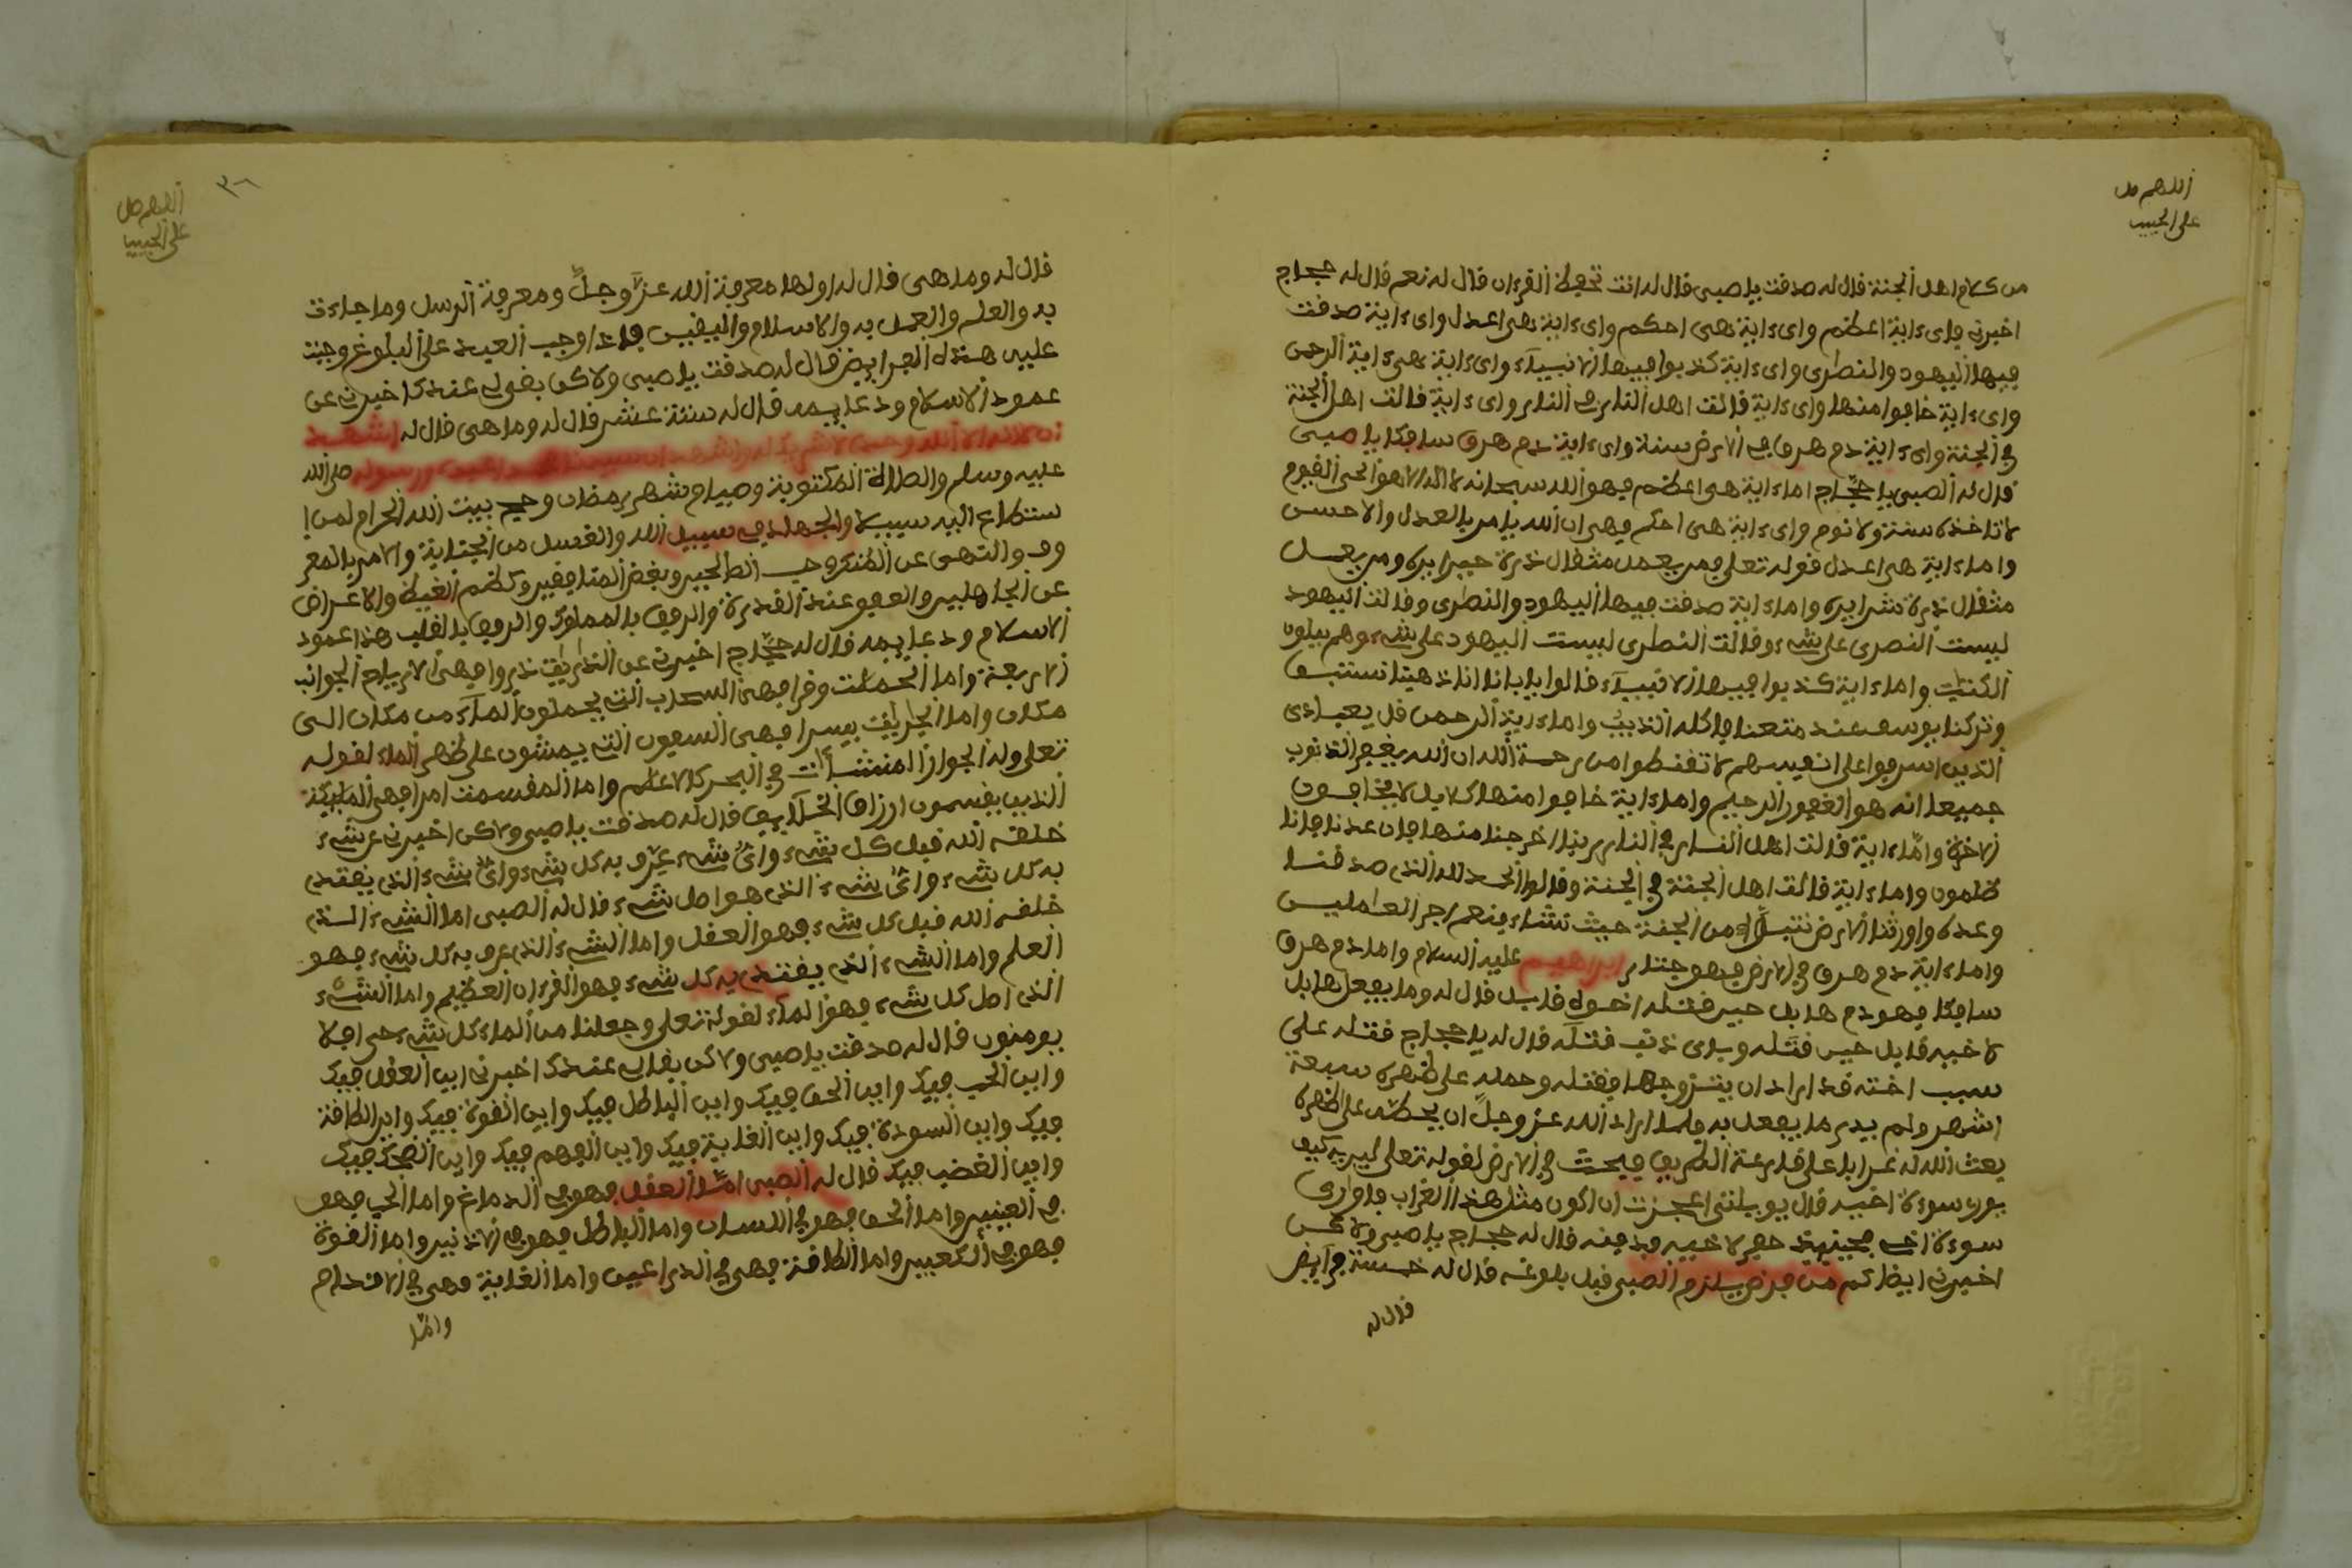 اللهم صل
على الحبيب
من كلام اهل الجنة قال له صدقت يا صبي قال له انت تحفظ القرءان قال له نعم قال له حجاج
اخبرني باي ءاية اعظم واي ءاية هي احكم واي ءاية هي اعدل واي ءاية صدقت
فيها اليهود والنصرى واي ءاية كذبوا فيها الانبياء واي ءاية هي ءاية الرحمن
واي ءاية خافوا منها واي ءاية قالت اهل النار في النار واي ءاية قالت اهل الجنة
في الجنة واي ءاية دم هرق في الارض سنة واي ءاية دم هرق سافكا يا صبي
قال له الصبي يا حجّاج اما ءاية هي اعظم فهو الله سبحانه لا اله الا هو الحي القيوم
لا تاخذه سنة ولا نوم واي ءاية هي احكم فهي ان الله يامر بالعدل والاحسن
واما ءاية هي اعدل قوله تعلى فمن يعمل مثقال ذرة خيرا يره ومن يعمل
مثقال ذرة شرا يره واما ءاية صدقت فيها اليهود والنصرى وقالت اليهود
ليست النصرى على شيء وقالت النصرى ليست اليهود على شيء وهم يتلون
الكتب واما ءاية كذبوا فيها الانبياء قالوا يا بانا انا ذهبنا نستبق
وتركنا يوسف عند متعنا فاكله الذيب واما ءاية الرحمن قل يعبادي
الذين اسرفوا على انفسهم لا تقنطوا من رحمة الله ان الله يغفر الذنوب
جميعا انه هو الغفور الرحيم واما ءاية خافوا منها كلا بل لا يخافون
الاخرة وامّا ءاية قالت اهل النار في النار ربنا اخرجنا منها فان عدنا فانا
ظلمون واما ءاية قالت اهل الجنة في الجنة وقالوا الحمد لله الذي صدقنا
وعده واورثنا الارض نتبوأ من الجنة حيث نشاء فنعم اجر العاملين
واما ءاية دم هرق في الارض فهو ابراهيم عليه السلام واما دم هرق
سافكا فهو دم هابل حين قتله اخوه قابل قال له وما يفعل هابل
لاخيه قابل حين قتله وباي ذنب قتله قال له يا حجاج قتله على
سبب اخته قد اراد ان يتزوجها فقتله وحمله على ظهره سبعة
اشهر ولم يدر ما يفعل به فلما اراد الله عز وجلّ ان يحطه على ظهره
بعث الله له غرابا على قارعة الطريق فبحث في الارض لقوله تعلى ليريه كيف
يوري سوءة اخيه قال يويلتى اعجزت ان اكون مثل هذا الغراب فاواري
سوءة اخي حفر لاخيه فدفنه قال له حجاج يا صبي ولاكن
اخبرني ايضا كم من فرض يلزم الصبي قبل بلوغه قال له خمسة فرايض
قال له
٣٦
اللهم صل
على الحبيب
قال له وما هي قال له اولها معرفة الله عزّ وجلّ ومعرفة الرسل وما جاءت
به والعلم والعمل به والاسلام واليقين فاذا وجب العبد على البلوغ وجبت
عليه هذه الفرايض قال له صدقت يا صبي ولاكن بقي لي عندك اخبرني عن
عمود الاسلام ودعايمه قال له ستة عشر قال له وما هي قال له اشهد
ان لا اله الا الله وحده لا شريك له واشهد ان سيدنا محمدا عبده ورسوله صلى الله
عليه وسلم والصلاة المكتوبة وصيام شهر رمضان وحج بيت الله الحرام لمن ا
ستطاع اليه سبيلا والجهاد في سبيل الله والغسل من الجنابة والامر بالمعر
وف والنهي عن المنكر وحب الصالحين وبغض المنافقين وكظم الغيظ والاعراض
عن الجاهلين والعفو عند القدرة والرفق بالمملوك والرفق بالقلب هذا عمود
الاسلام ودعايمه قال له حجّاج اخبرني عن الذاريات ذروا فهي الارياح الجوانب
الاربعة واما الحملت وقرا فهي السحاب التي يحملون الماء من مكان الى
مكان واما الجاريت يسرا فهي السفون التي يمشون على ظهر الماء لقوله
تعلى وله الجوار المنشأت في البحر كالاعلم واما المقسمت امرا فهي الملايكة
الذين يقسمون ارزاق الخلايق قال له صدقت يا صبي ولاكن اخبرني عن شيء
خلقه الله قبل كل شيء وايّ شيء عرف به كل شيء وايّ شيء الذي يقتدى
به كل شيء وايّ شيء الذي هو اصل شيء قال له الصبي اما الشيء الذي
خلقه الله قبل كل شيء فهو العقل واما الشيء الذي عرف به كل شيء فهو
العلم واما الشيء الذي يقتدى به كل شيء فهو القرءان العظيم واما الشيء
الذي اصل كل شيء فهو الماء لقوله تعلى وجعلنا من الماء كل شيء حي افلا
يومنون قال له صدقت يا صبي ولاكن بقى لي عندك اخبرني اين العقل فيك
واين الحب فيك واين الحق فيك واين الباطل فيك واين القوة فيك واين الطاقة
فيك واين السودة فيك واين الغاية فيك واين الفهم فيك واين الضحك فيك
واين الغضب فيك قال له الصبي امّا العقل فهو في الدماغ واما الحب فهو
في العينين واما الحق فهو في اللسان واما الباطل فهو في الاذنين واما القوة
فهو في الكعبين واما الطاقة فهي في الذراعين واما الغاية فهي في الاقدام
وامّا